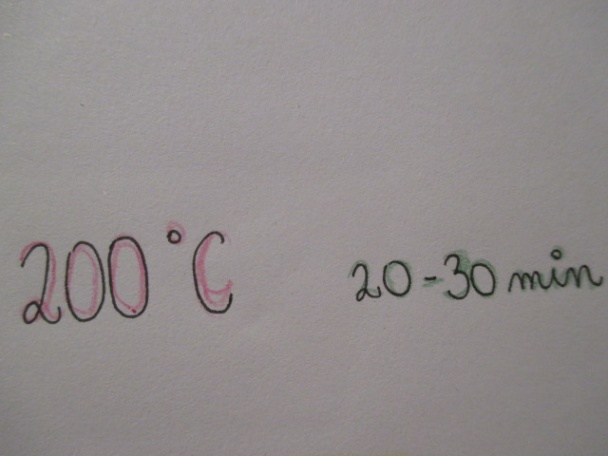 200°C 20-30 min